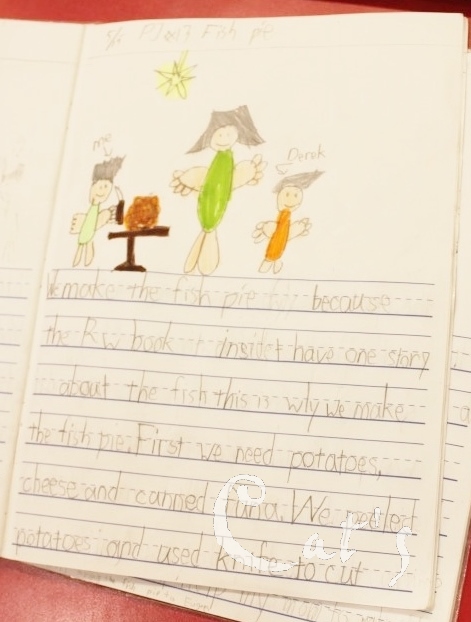 Fish pie
me
Derok
We make the fish pie because
the RW book insidet have one story
about the fish this is why we make
the fish pie. First we need potatoes,
cheese and canned tuna. We
potatoes and used knife to cut
Cat's